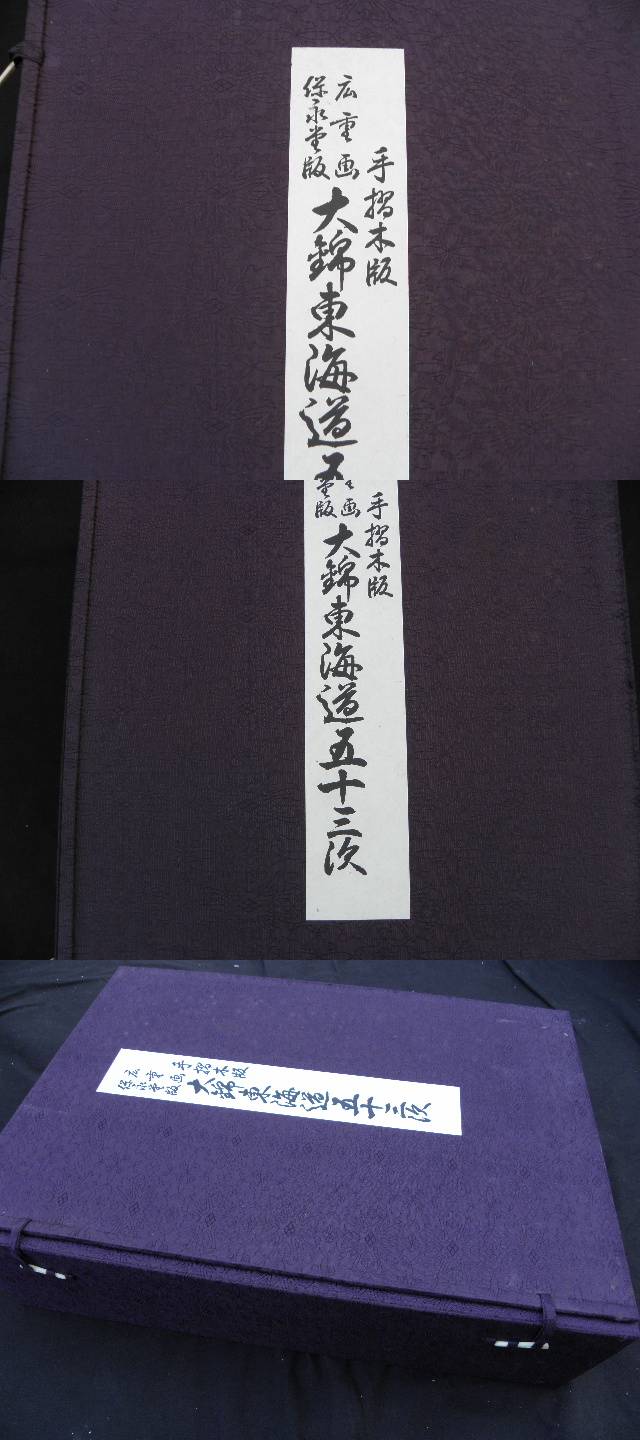 手摺木版
広重画
保永堂版
大錦東海道五
手摺木版
画
堂版
大錦東海道五十三次
手摺木版
広重画
保永堂版
大錦東海道五十三次